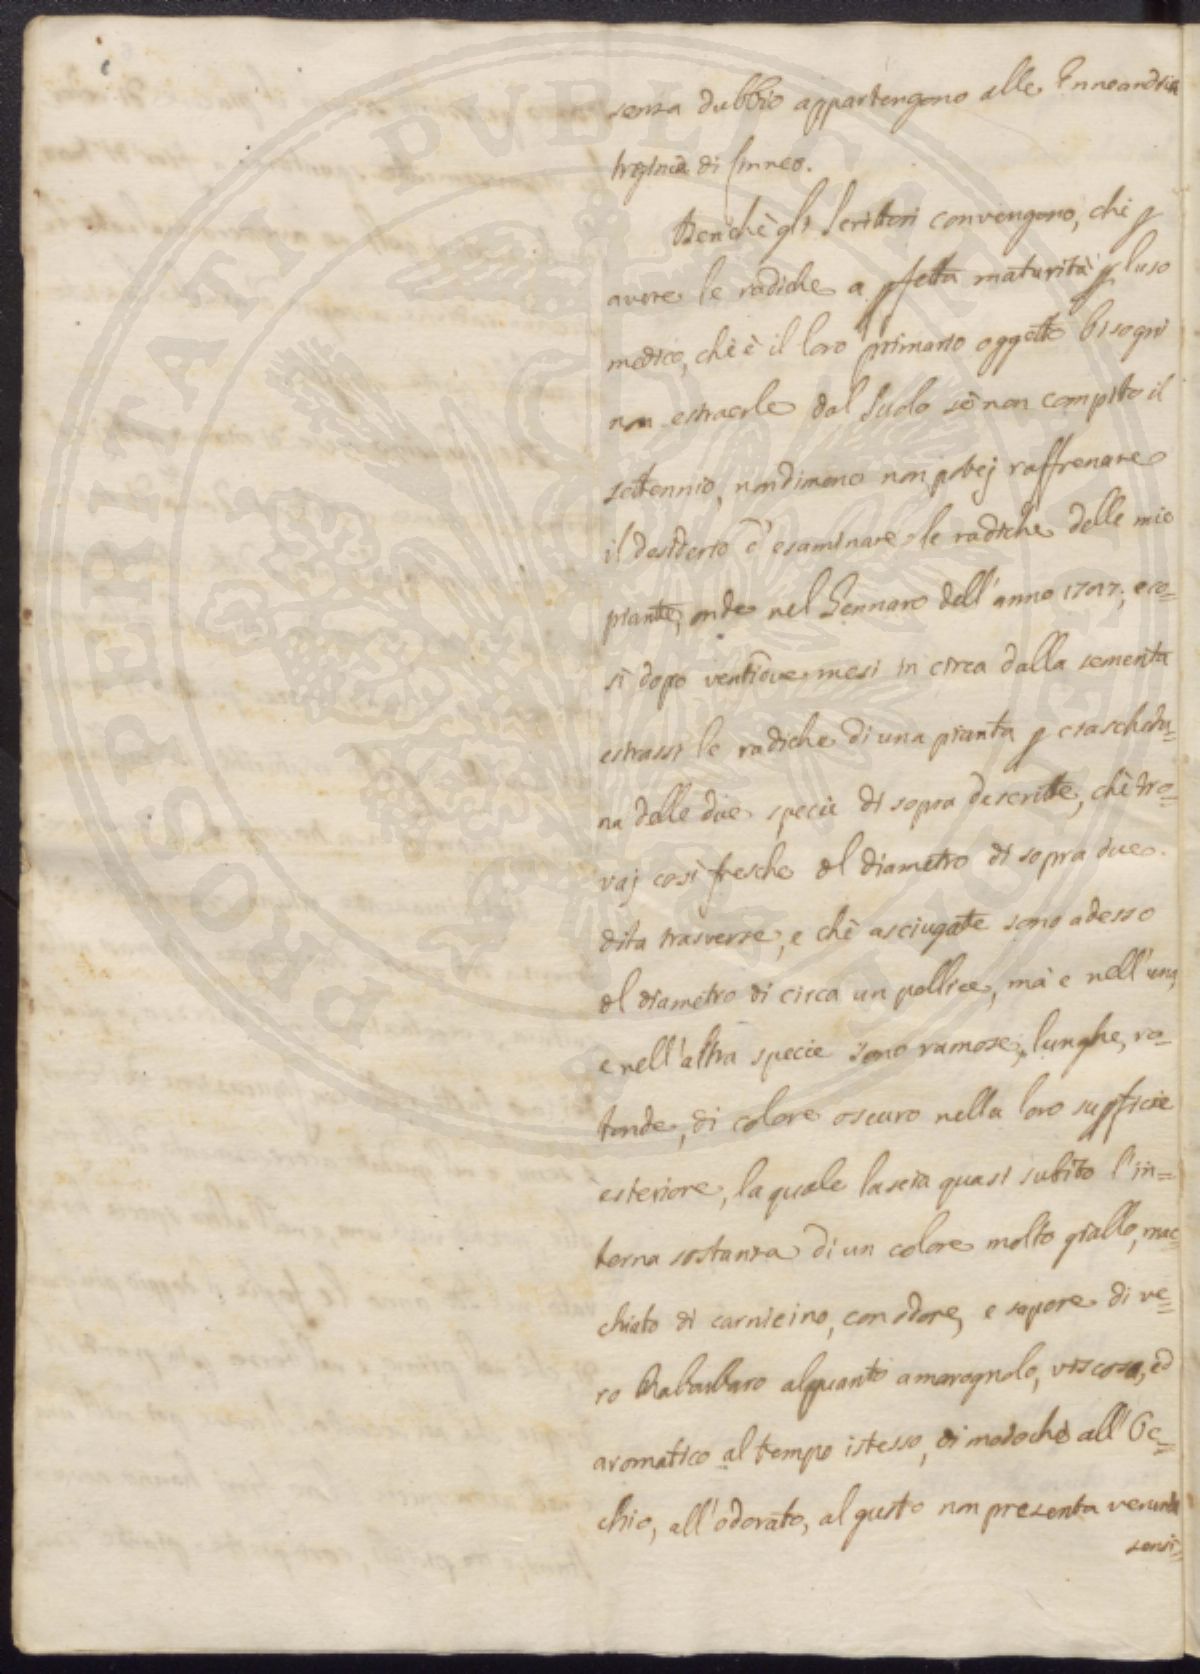 senza dubbio appartengono alle Enneandria
triginia di Linneo.
Benchè gli Scrittori convengono, che p
avere le radiche a pfetta maturità p l'uso
medico, chè è il loro primario oggetto bisogni
non estraerle dal suolo sè non compito il
settennio, nondimeno non potej raffrenare
il desiderio d'esaminare le radiche delle mie
piante, onde nel Gennaro dell'anno 1787, e co=
sì dopo ventinove mesi in circa dalla sementa
estrassi le radiche di una pianta p ciaschedu=
na delle due specie di sopra descritte, chè tro=
vaj così fresche del diametro di sopra due
dita trasverse, e chè asciugate sono adesso
del diametro di circa un pollice, mà e nell'una,
e nell'altra specie sono ramose, lunghe, ro=
tonde, di colore oscuro nella loro supficie
esteriore, la quale lascia quasi subito l'in=
terna sostanza di un colore molto giallo, mac=
chiato di carnicino, con odore, e sapore di ve=
ro Rabarbaro alquanto amarognolo, viscoso, ed
aromatico al tempo istesso, di modochè all'Oc=
chio, all'odorato, al gusto non presenta veruna
sensi=
PROSPERITATI PUBLICAE